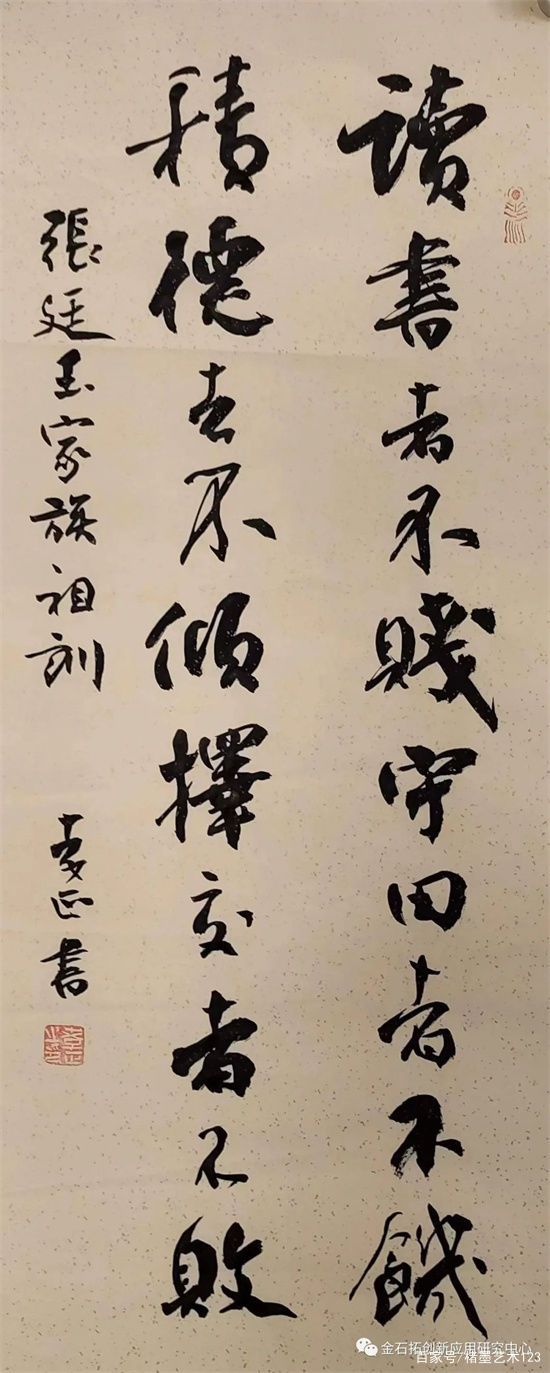 讀書者不賤守田者不饑
積德者不傾擇交者不敗
張廷玉家族祖訓
李正書
金石拓创新应用研究中心
百家号/楮墨艺术123